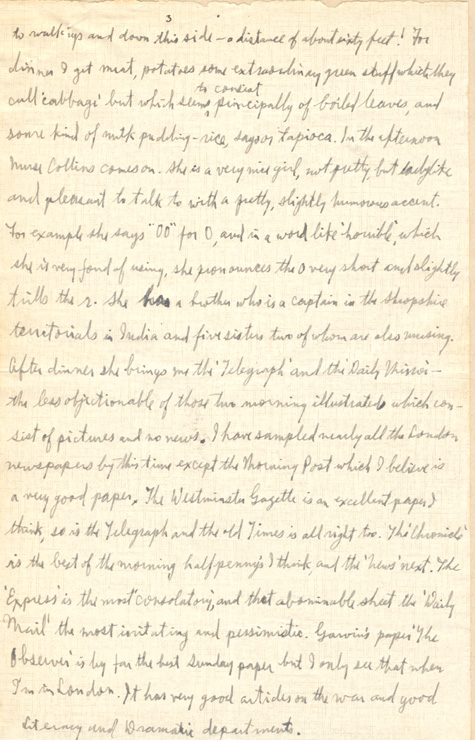 3
to walk up and down this side – a distance of about sixty feet! For
dinner I get meat, potatoes some extraordinary green stuff which they
call 'cabbage' but which seems to consist principally of boiled leaves, and
some kind of milk pudding – rice, sago or tapioca. In the afternoon
Nurse Collins comes on. She is a very nice girl, not pretty but ladylike
and pleasant to talk to with a pretty, slightly humorous accent.
For example she says "OO" for O, and in a word like 'horrible', which
she is very fond of using, she pronounces the o very short and slightly
trills the r. She has a brother who is a captain in the Shropshire
territorials in India and five sisters two of whom are also nursing.
After dinner she brings me the 'Telegraph' and the 'Daily Mirror' –
the less objectionable of those two morning illustrateds which con-
sist of pictures and no news. I have sampled nearly all the London
newspapers by this time except the Morning Post which I believe is
a very good paper. The Westminster Gazette is an excellent paper I
think, so is the Telegraph and the old Times is all right too. The 'Chronicle'
is the best of the morning halfpenny's I think, and the 'News' next. The
'Express' is the most 'consolatory', and that abominable sheet the 'Daily
Mail' the most irritating and pessimistic. Garvin's paper 'The
Observer' is by far the best Sunday paper but I only see that when
I'm in London. It has very good articles on the war and good
Literary and Dramatic departments.